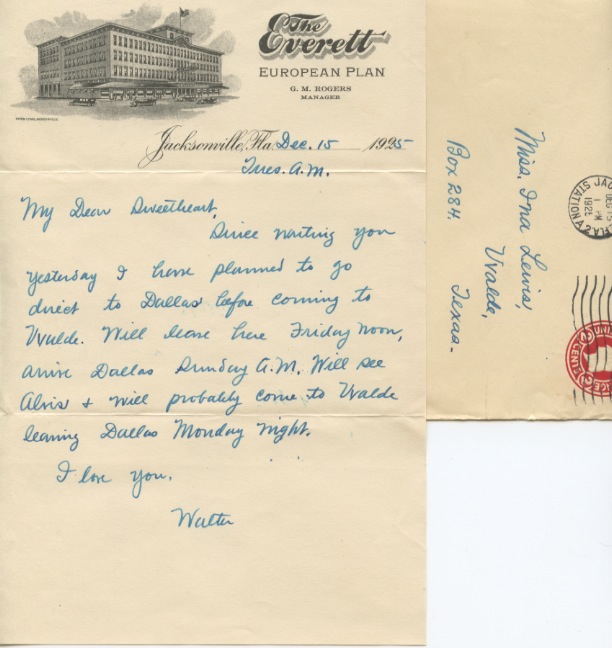 The
Everett
EUROPEAN PLAN
G. M. ROGERS
MANAGER
Jacksonville, Fla. Dec. 15 1925
Tues. A.M.
My Dear Sweetheart,
Since writing you
yesterday I have planned to go
direct to Dallas before coming to
Uvalde. Will leave here Friday noon,
arrive Dallas Sunday A.M. Will see
Alvis & will probably come to Uvalde
leaving Dallas Monday night.
I love you.
Walter
Miss. Ina Lewis,
Uvalde,
Box 284. Texas.
JAC
DEC 15
1 PM
1925
STATION A
FLA.
UNIT
2 CENTS 2